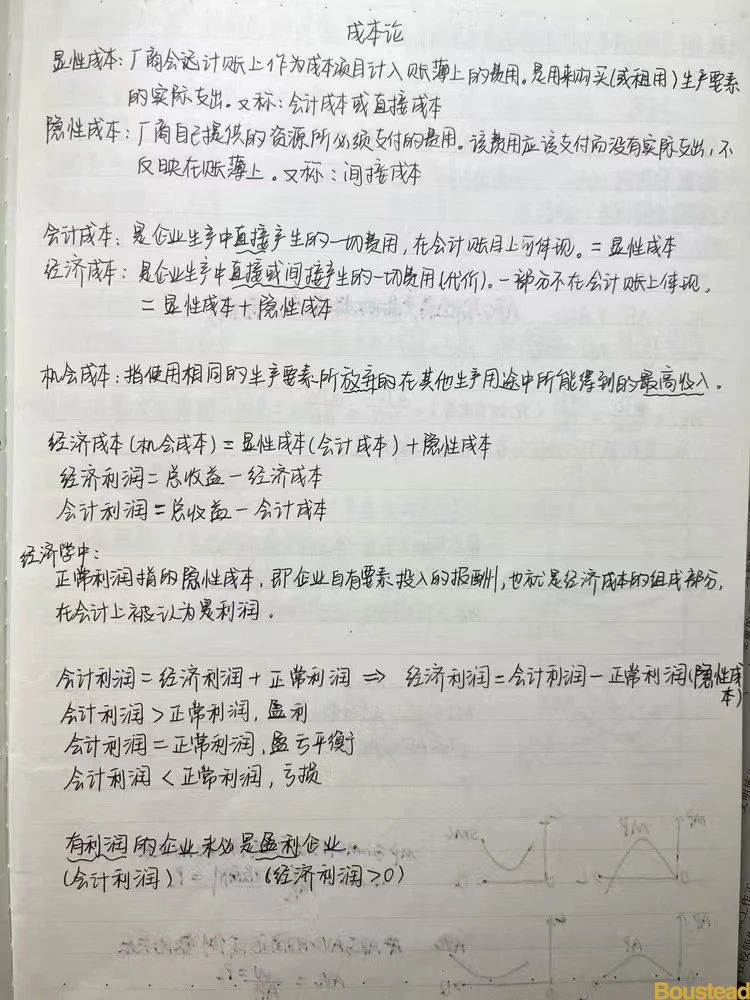 成本论
显性成本：厂商会计账上作为成本项目计入账薄上的费用。是用来购买(或租用)生产要素
的实际支出。又称：会计成本或直接成本
隐性成本：厂商自己提供的资源所必须支付的费用。该费用应该支付而没有实际支出，不
反映在账薄上。又称：间接成本
会计成本：是企业生产中直接产生的一切费用，在会计账目上可体现。=显性成本
经济成本：是企业生产中直接或间接产生的一切费用(代价)。一部分不在会计账上体现。
=显性成本+隐性成本
机会成本：指使用相同的生产要素所放弃的在其他生产用途中所能得到的最高收入。
经济成本(机会成本)=显性成本(会计成本)+隐性成本
经济利润=总收益-经济成本
会计利润=总收益-会计成本
经济学中：
正常利润指的隐性成本，即企业自有要素投入的报酬，也就是经济成本的组成部分，
在会计上被认为是利润。
会计利润=经济利润+正常利润 ⇒ 经济利润=会计利润-正常利润(隐性成
本)
会计利润>正常利润，盈利
会计利润=正常利润，盈亏平衡
会计利润<正常利润，亏损
有利润的企业未必是盈利企业。
(会计利润) (经济利润>0)
Boustead